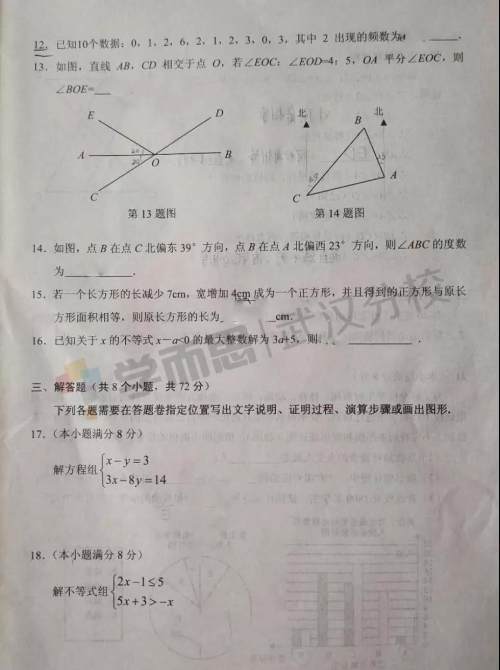 12. 已知10个数据：0，1，2，6，2，1，2，3，0，3，其中 2 出现的频数为 4 ____.
13. 如图，直线 AB，CD 相交于点 O，若∠EOC：∠EOD=4：5，OA 平分∠EOC，则
∠BOE=___
E
D
A
O
B
C
第 13 题图
北
北
B
A
C
第 14 题图
14. 如图，点 B 在点 C 北偏东 39° 方向，点 B 在点 A 北偏西 23° 方向，则∠ABC 的度数
为____ ____.
15. 若一个长方形的长减少 7cm，宽增加 4cm 成为一个正方形，并且得到的正方形与原长
方形面积相等，则原长方形的长为____cm.
16. 已知关于 x 的不等式 x－a<0 的最大整数解为 3a+5，则 ____.
学而思 武汉分校
三、解答题（共 8 个小题，共 72 分）
下列各题需要在答题卷指定位置写出文字说明、证明过程、演算步骤或画出图形.
17.（本小题满分 8 分）
解方程组{x－y=3
3x－8y=14
18.（本小题满分 8 分）
解不等式组{2x－1≤5
5x+3>－x